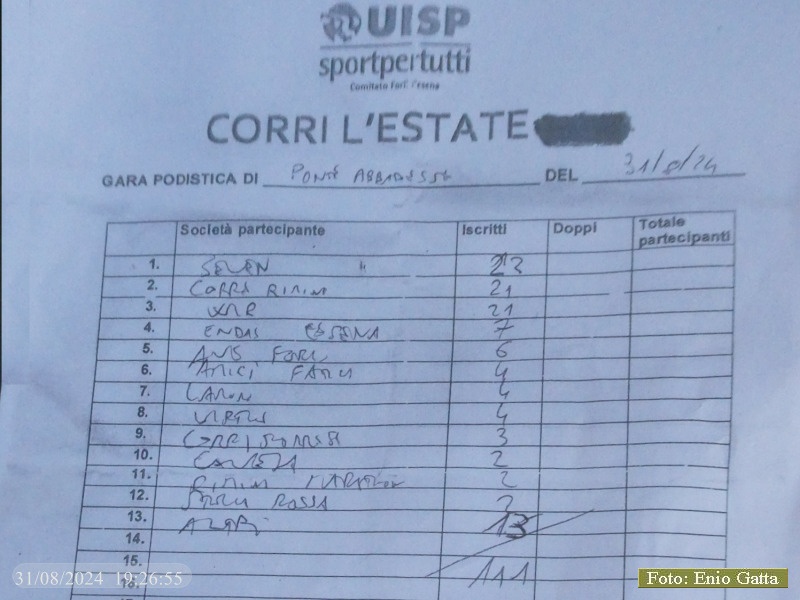 UISP
sportpertutti
Comitato Forlì Cesena
CORRI L'ESTATE
GARA PODISTICA DI PONTE ABBADESSE DEL 31/8/24
Società partecipante Iscritti Doppi Totale partecipanti
1. SEVEN " 23
2. CORRI RIMINI 21
3. 21
4. ENDAS CESENA 7
5. AVIS FORLI 6
6. AMICI 4
7. 4
8. VIRTUS 4
9. 3
10. 2
11. RIMINI MARATHON 2
12. ROSSA 2
13. 13
14.
15.
16. 111
31/08/2024 19:26:55
Foto: Enio Gatta